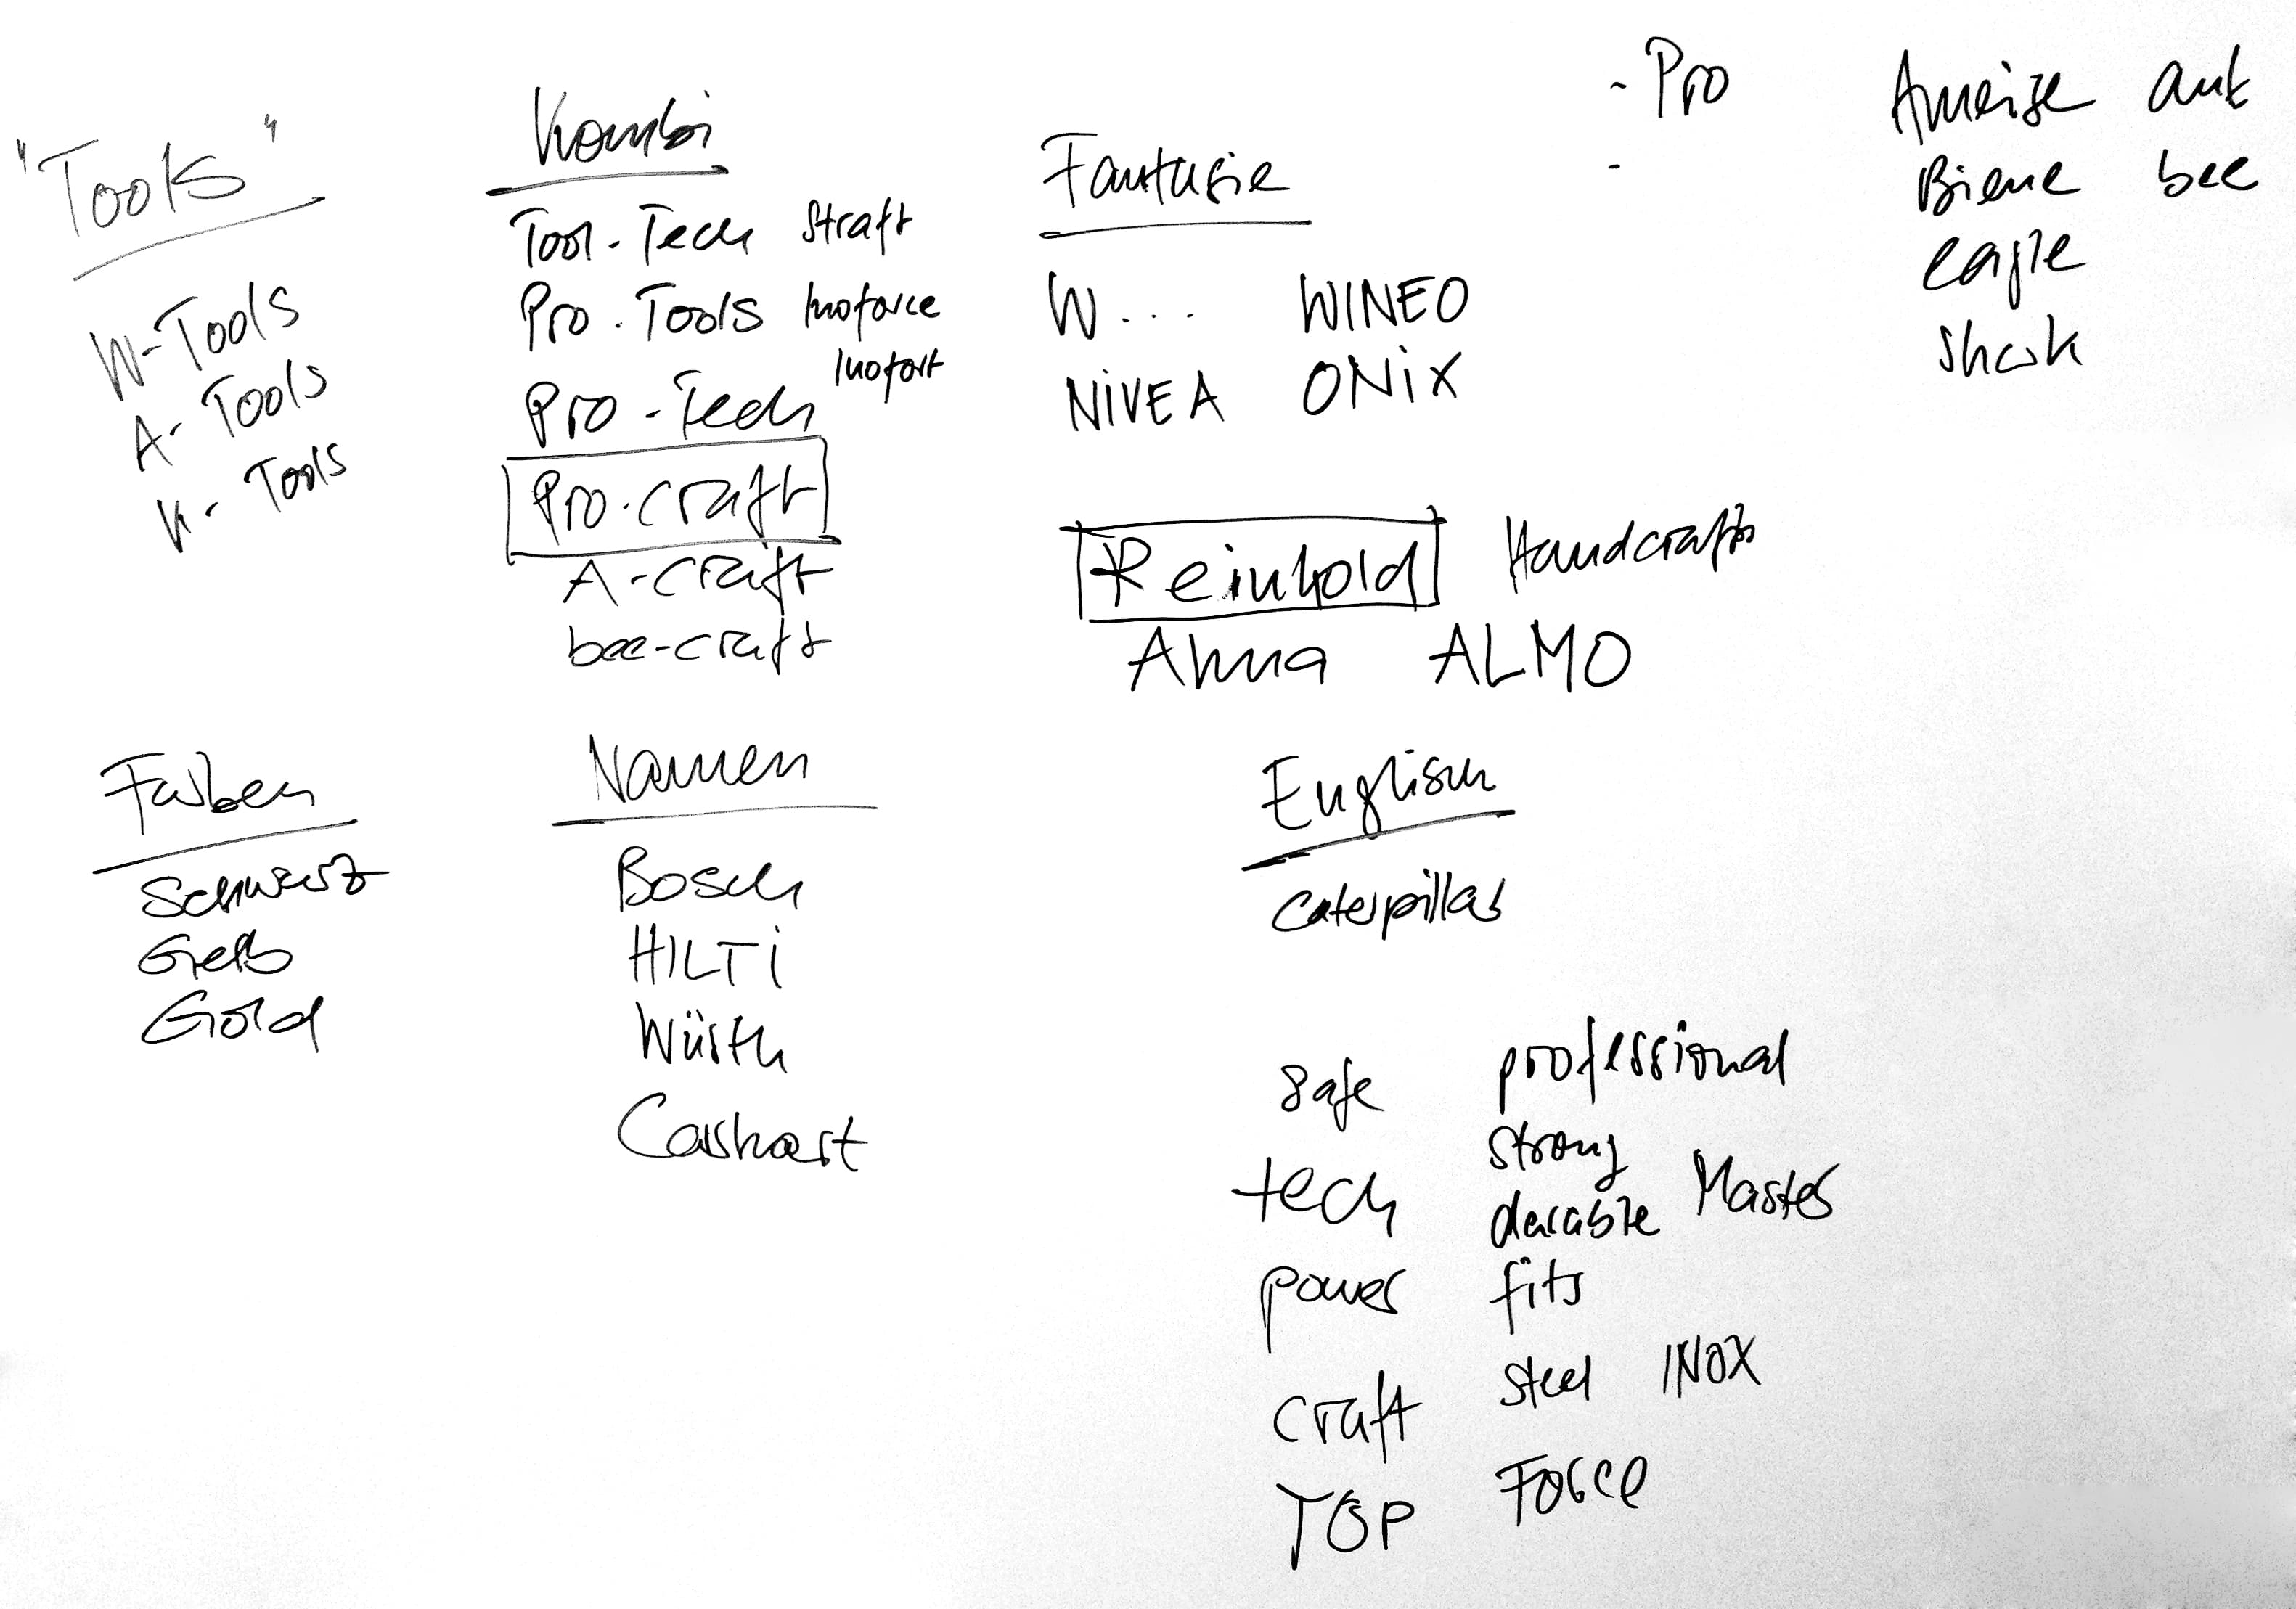 "Tools"
W-Tools
A-Tools
K-Tools
Kombi
Tool-Tech Straft
Pro.Tools Inoforce
Inofort
Pro-Tech
Pro.craft
A-craft
bee-craft
Fantasie
W... WINEO
NIVEA ONiX
Reinhold Handcraft
ALMO
- Pro
-
Ameise ant
Biene bee
eagle
Shark
Farben
Schwarz
Gelb
Gold
Namen
Bosch
HILTi
Würth
Carhart
Englisch
Caterpillar
safe professional
strong
tech durable Master
power fits
craft steel INOX
TOP Force